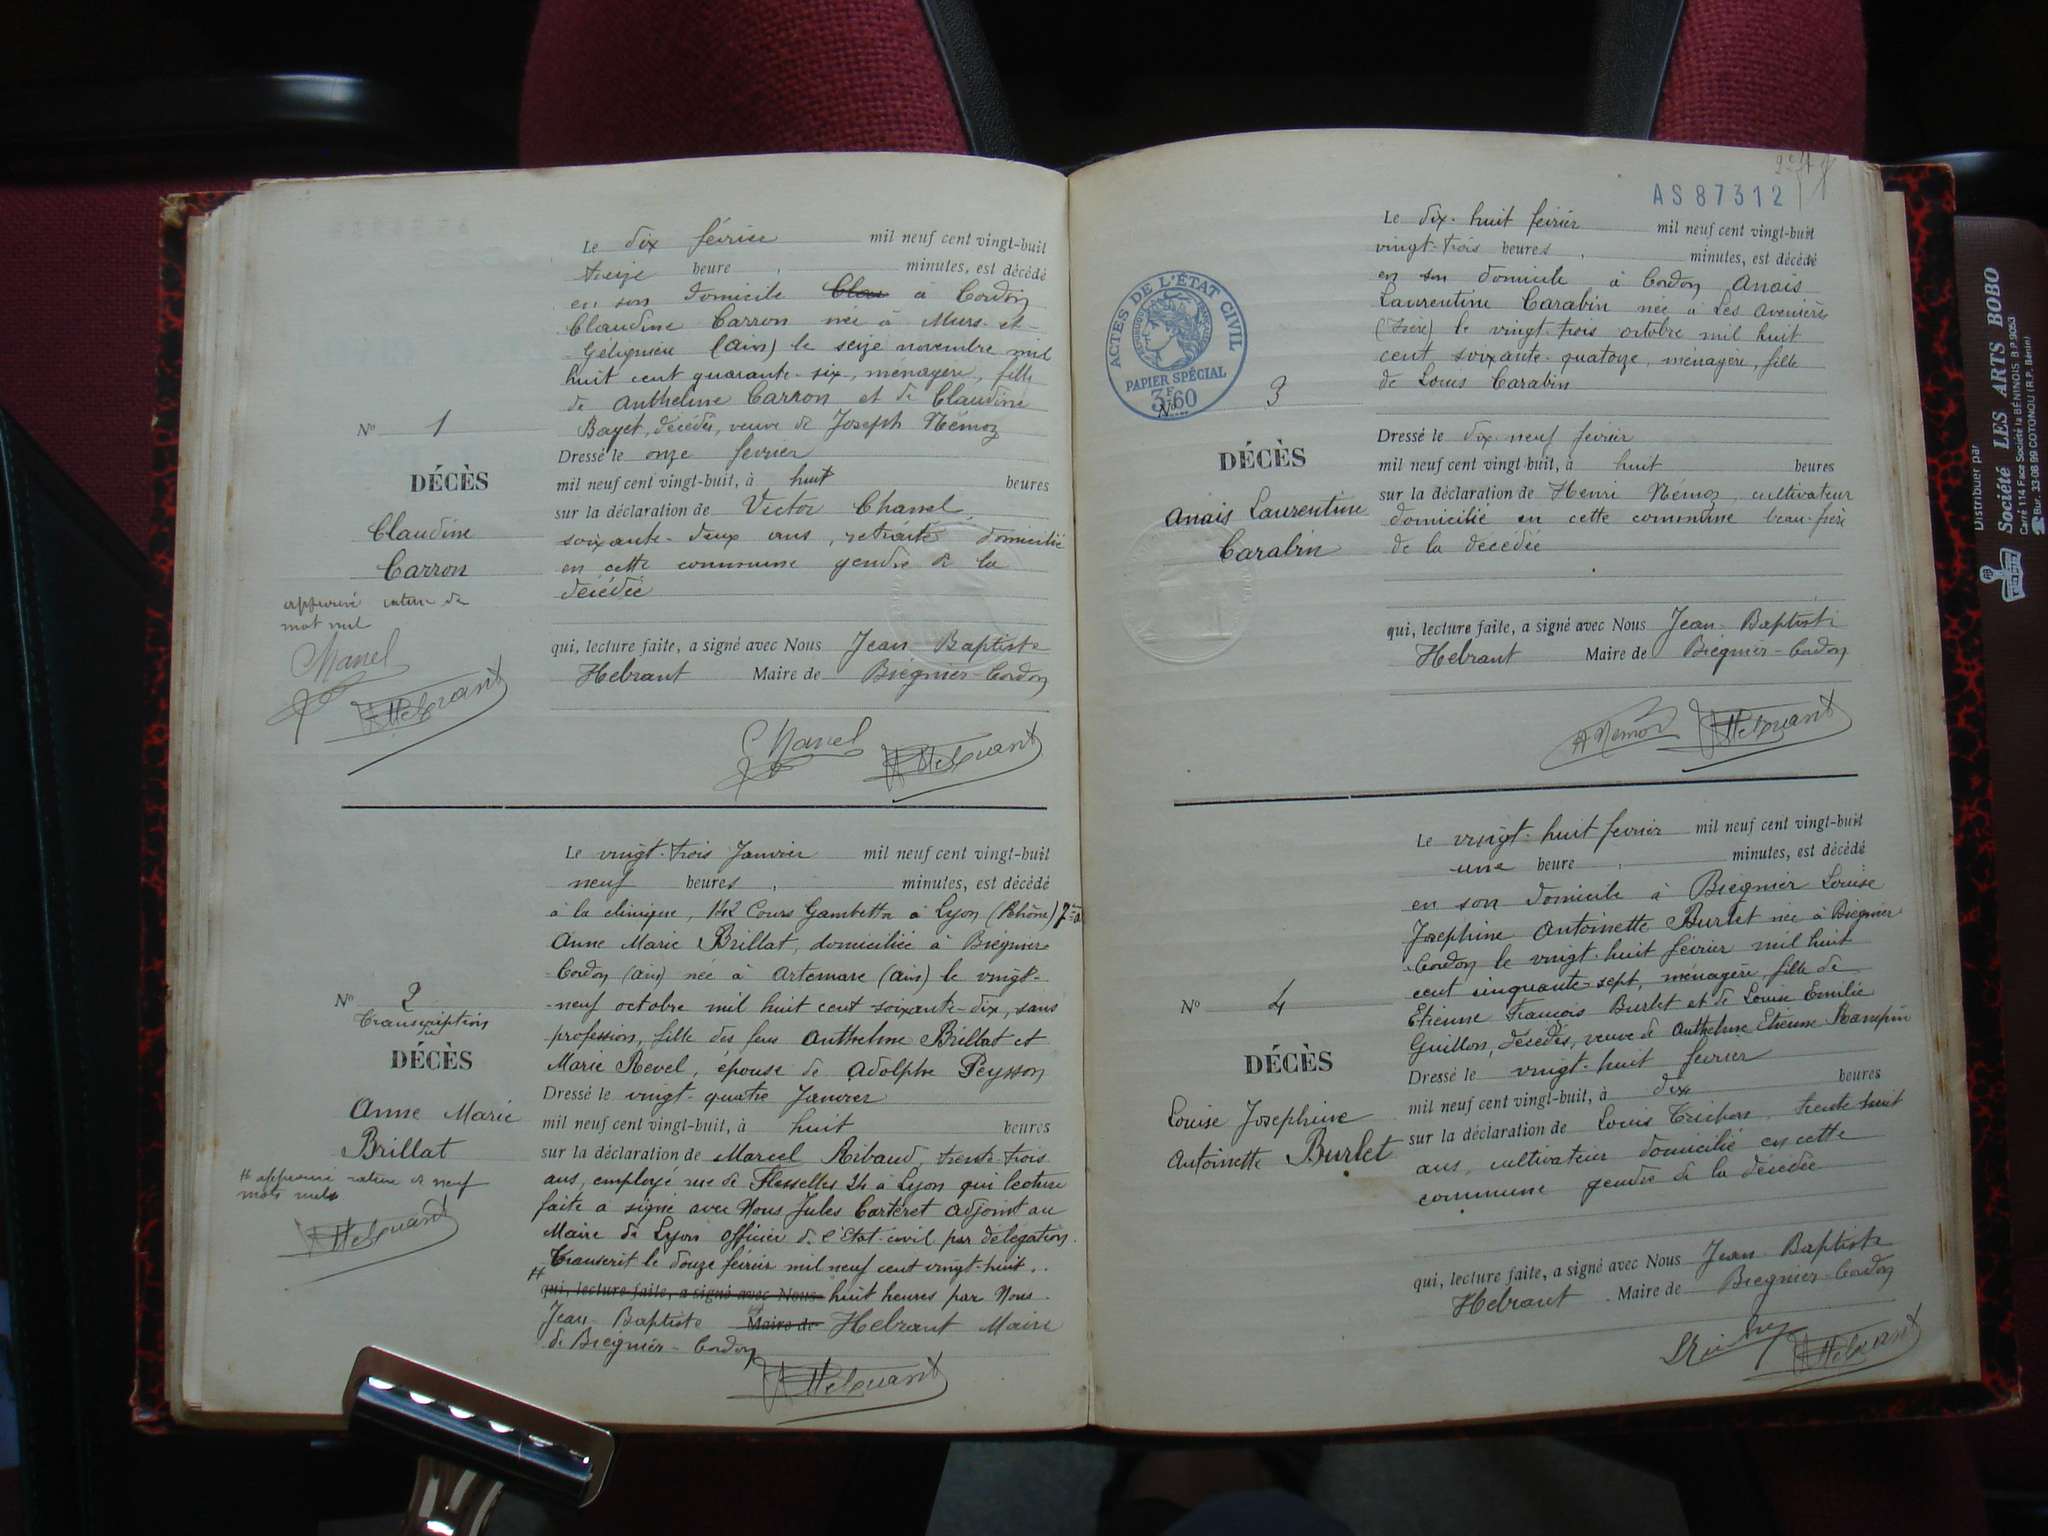 Le dix février mil neuf cent vingt-huit
treize heure , minutes, est décédé
en son domicile à Cordon
Claudine Carron née à Murs-et-
Gélignieu (Ain) le seize novembre mil
huit cent quarante-six, ménagère, fille
de Anthelme Carron et de Claudine
Bayet, décédés, veuve de Joseph Némoz
Nº 1
DÉCÈS
Claudine
Carron
approuvé rature de
mot nul
Chanel
Dressé le onze février
mil neuf cent vingt-huit, à huit heures
sur la déclaration de Victor Chanel,
soixante-deux ans, retraité domicilié
en cette commune gendre de la
décédée
qui, lecture faite, a signé avec Nous Jean Baptiste
Hebrant Maire de Brégnier-Cordon
Chanel Hebrant
Le vingt-trois Janvier mil neuf cent vingt-huit
neuf heures , minutes, est décédé
à la clinique, 142 Cours Gambetta à Lyon (Rhône)
Anne Marie Brillat, domiciliée à Brégnier-
Cordon (ain) née à Artemare (ain) le vingt-
-neuf octobre mil huit cent soixante-dix, sans
profession, fille des feus Anthelme Brillat et
Marie Revel, épouse de Adolphe Peysson
Nº 2
Transcription
DÉCÈS
Anne Marie
Brillat
# approuvé rature de neuf
mots nuls
Hebrant
Dressé le vingt-quatre Janvier
mil neuf cent vingt-huit, à huit heures
sur la déclaration de Marcel Ribaud, trente-trois
ans, employé rue de Flesselles 24 à Lyon qui lecture
faite a signé avec Nous Jules Carteret adjoint au
Maire de Lyon officier de l'Etat-civil par délégation.
Transcrit le douze février mil neuf cent vingt-huit.
# qui, lecture faite, a signé avec Nous huit heures par Nous
Jean Baptiste Maire de Hebrant Maire
de Brégnier-Cordon
Hebrant
AS 87312
ACTES DE L'ÉTAT CIVIL
PAPIER SPÉCIAL
3F60
Le dix-huit février mil neuf cent vingt-huit
vingt-trois heures , minutes, est décédé
en son domicile à Cordon Anais
Laurentine Carabin née à Les Avenières
(Isère) le vingt trois octobre mil huit
cent soixante-quatorze, ménagère, fille
de Louis Carabin
Nº 3
DÉCÈS
Anais Laurentine
Carabin
Dressé le dix-neuf février
mil neuf cent vingt-huit, à huit heures
sur la déclaration de Henri Némoz, cultivateur
domicilié en cette commune beau-frère
de la décédée
qui, lecture faite, a signé avec Nous Jean-Baptiste
Hebrant Maire de Brégnier-Cordon
H Nemoz Hebrant
Le vingt-huit février mil neuf cent vingt-huit
une heure , minutes, est décédé
en son domicile à Brégnier Louise
Josephine Antoinette Burlet née à Brégnier
-Cordon le vingt-huit février mil huit
cent cinquante-sept, ménagère, fille de
Etienne François Burlet et de Louise Emilie
Guillon, décédés, veuve de Anthelme Etienne
Nº 4
DÉCÈS
Louise Josephine
Antoinette Burlet
Dressé le vingt-huit février
mil neuf cent vingt-huit, à dix heures
sur la déclaration de Louis trente huit
ans, cultivateur domicilié en cette
commune gendre de la décédée
qui, lecture faite, a signé avec Nous Jean-Baptiste
Hebrant Maire de Brégnier-Cordon
Hebrant
Distribuer par
Société LES ARTS BOBO
Carré 114 Face Société la BÉNINOIS B.P. 9053
Bur. 33-06 99 COTONOU (R.P. Bénin)